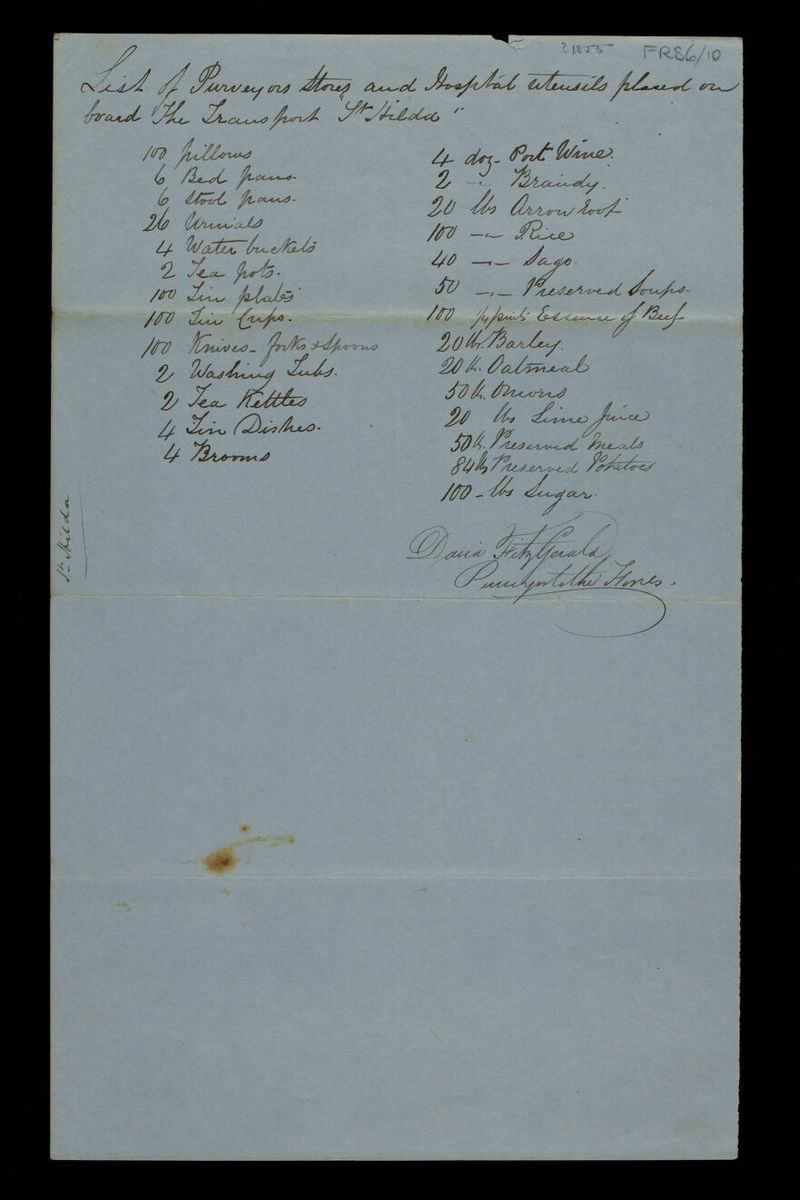 ? 1855
FRS6/10
List of Purveyors Stores and Hospital utensils placed on
board The Transport "St Hilda"
100 pillows
6 Bed pans.
6 Stool pans.
26 Urinals
4 Water buckets
2 Tea pots.
100 Tin plates
100 Tin Cups.
100 Knives - forks & Spoons
2 Washing Tubs.
2 Tea Kettles
4 Tin Dishes.
4 Brooms
4 doz - Port Wine.
2 -"- Brandy.
20 lbs Arrow root
100 -"- Rice
40 -"- Sago
50 -"- Preserved Soups.
100 1/4 pints Essence of Beef
20 lb. Barley.
20 lb. Oatmeal
50 lb. Onions
20 lbs Lime Juice
50 lb. Preserved Meats
84 lb Preserved Potatoes
100 - lbs Sugar.
David FitzGerald
Purveyor to the Forces.
St Hilda